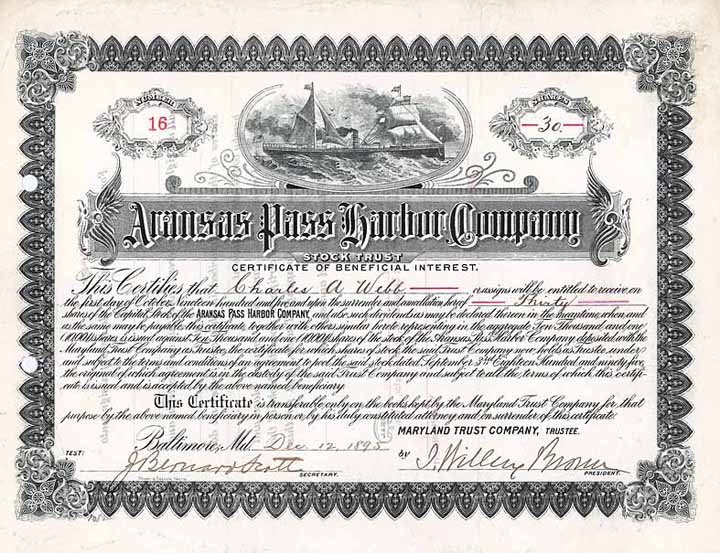 NUMBER
16
SHARES
30
Aransas Pass Harbor Company
STOCK TRUST
CERTIFICATE OF BENEFICIAL INTEREST.
This Certifies that Charles A Webb or assigns will be entitled to receive on
the first day of October Nineteen hundred and five and upon the surrender and cancellation hereof Thirty
shares of the Capital Stock of the ARANSAS PASS HARBOR COMPANY, and also such dividends as may be declared thereon in the meantime, when and
as the same may be payable, this certificate, together with others similar hereto, representing in the aggregate Ten Thousand and one
(10,001) shares is issued against Ten Thousand and one (10,001) shares of the stock of the Aransas Pass Harbor Company deposited with the
Maryland Trust Company as Trustee, the certificate for which shares of stock, the said Trust Company now holds as Trustee under
and subject to the terms and conditions of an agreement to pool the said stock dated September 3rd Eighteen Hundred and ninety five
the original of which agreement is in the custody of the said Trust Company and subject to all the terms of which this certifi-
cate is issued and is accepted by the above named beneficiary.
This Certificate is transferable only on the books kept by the Maryland Trust Company for that
purpose by the above named beneficiary in person or by his duly constituted attorney and on surrender of this certificate.
MARYLAND TRUST COMPANY, TRUSTEE.
Baltimore, Md. Dec 12, 1895
TEST:
J Bernard Scott
SECRETARY.
by J. Willcox Brown
PRESIDENT.